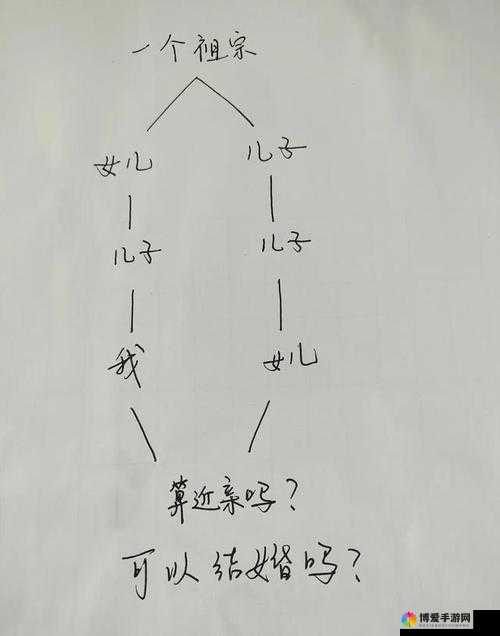 一个祖宗
女儿 儿子
儿子 儿子
我 女儿
算近亲吗？
可以结婚吗？
博爱手游网